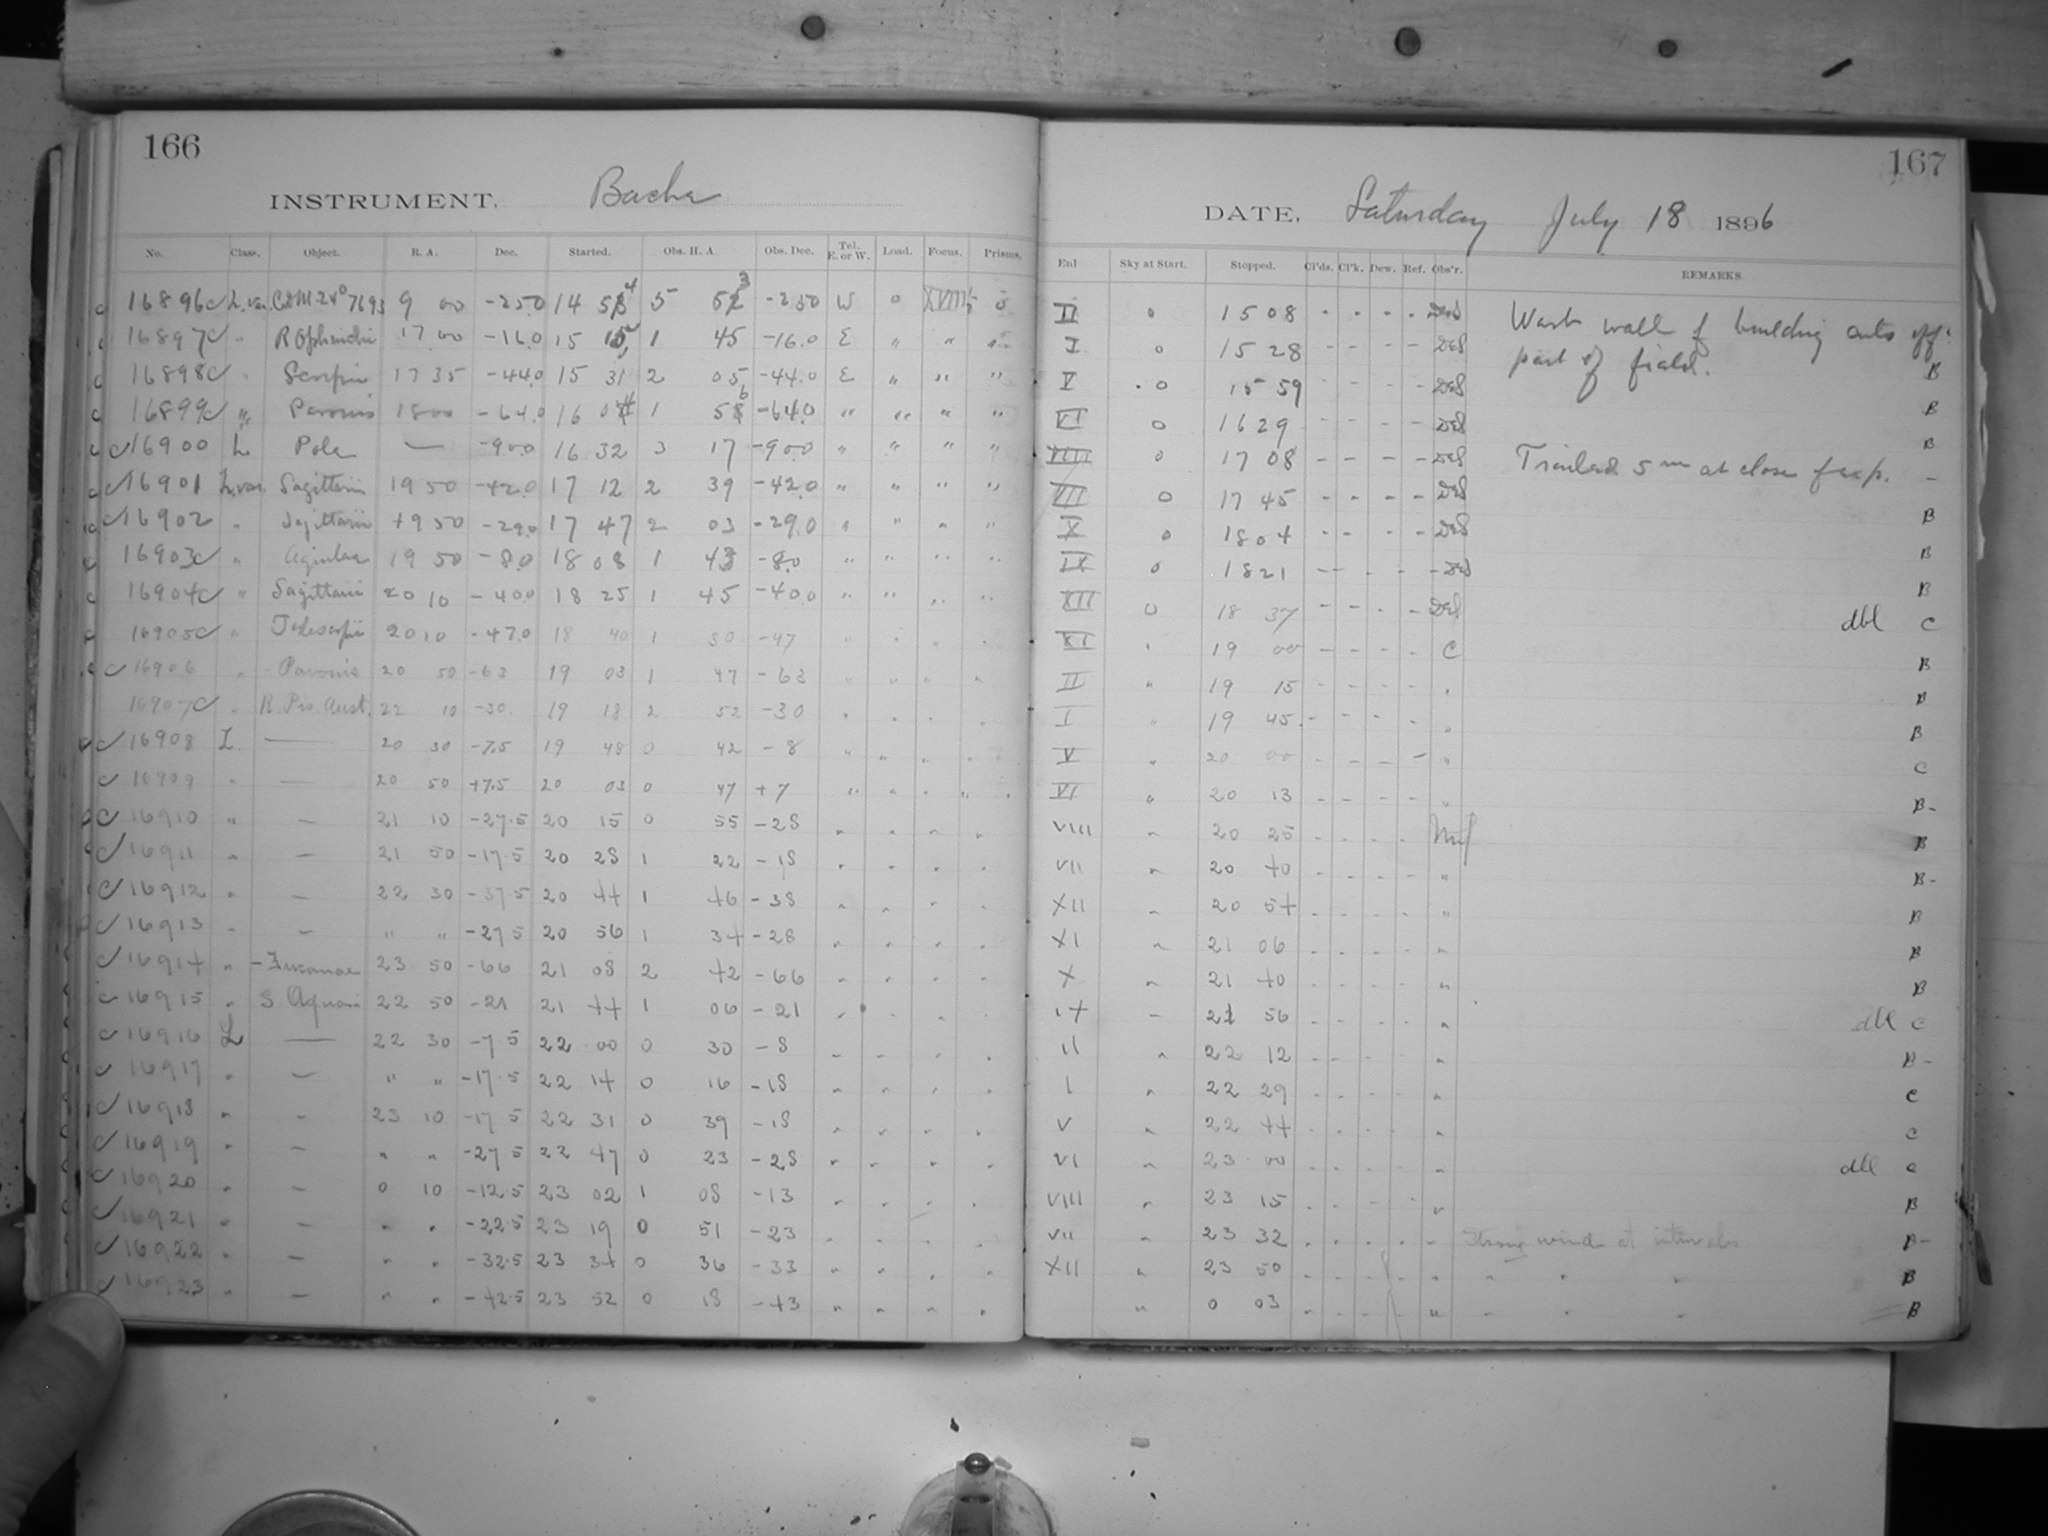 166
INSTRUMENT. Bache
No. Class. Object. R. A. Dec. Started. Obs. H. A. Obs. Dec. Tel. E. or W. Load. Focus. Prisms.
16896 L. var. 9 00 -25.0 14 5 5 -25.0 W 0 XVIII 0
16897 " R Ophiuchi 17 00 -16.0 15 15 1 45 -16.0 E " " "
16898 " Scorpii 17 35 -44.0 15 31 2 05 -44.0 E " " "
16899 " Pavonis 18 00 -64.0 16 04 1 56 -64.0 " " " "
16900 L Pole — -90.0 16 32 3 17 -90.0 " " " "
16901 L. var. Sagittarii 19 50 -42.0 17 12 2 39 -42.0 " " " "
16902 " Sagittarii 19 50 -29.0 17 47 2 03 -29.0 " " " "
16903 " Aquilae 19 50 -8.0 18 08 1 43 -8.0 " " " "
16904 " Sagittarii 20 10 -40.0 18 25 1 45 -40.0 " " " "
16905 " Telescopii 20 10 -47.0 18 40 1 30 -47 " " " "
16906 " Pavonis 20 50 -63 19 03 1 47 -63 " " " "
16907 " R. Pis. Aust. 22 10 -30. 19 18 2 52 -30 " " " "
16908 L. — 20 30 -7.5 19 48 0 42 -8 " " " "
16909 " — 20 50 +7.5 20 03 0 47 +7 " " " "
16910 " — 21 10 -27.5 20 15 0 55 -28 " " " "
16911 " — 21 50 -17.5 20 28 1 22 -18 " " " "
16912 " — 22 30 -37.5 20 44 1 46 -38 " " " "
16913 " — " " -27.5 20 56 1 34 -28 " " " "
16914 " - Tucanae 23 50 -66 21 08 2 42 -66 " " " "
16915 " S Aquarii 22 50 -21 21 44 1 06 -21 " " " "
16916 L — 22 30 -7.5 22 00 0 30 -8 " " " "
16917 " — " " -17.5 22 14 0 16 -18 " " " "
16918 " — 23 10 -17.5 22 31 0 39 -18 " " " "
16919 " — " " -27.5 22 47 0 23 -28 " " " "
16920 " — 0 10 -12.5 23 02 1 08 -13 " " " "
16921 " — " " -22.5 23 19 0 51 -23 " " " "
16922 " — " " -32.5 23 34 0 36 -33 " " " "
16923 " — " " -42.5 23 52 0 18 -43 " " " "
167
DATE, Saturday July 18 1896
Enl Sky at Start. Stopped. Cl'ds. Cl'k. Dew. Ref. Obs'r. REMARKS.
II 0 15 08 - - - - DES West wall of building cuts off
I 0 15 28 - - - - DES part of field. B
V 0 15 59 - - - - DES B
VI 0 16 29 - - - - DES B
VIII 0 17 08 - - - - DES Trailed 5 m at close of exp. -
VII 0 17 45 - - - - DES B
X 0 18 04 - - - - DES B
IX 0 18 21 - - - - DES B
XII 0 18 37 - - - - DES dbl C
XI " 19 00 - - - - C B
II " 19 15 - - - - " B
I " 19 45 - - - - " B
V " 20 00 - - - - " C
VI " 20 13 - - - - " B-
VIII " 20 25 - - - - B
VII " 20 40 - - - - " B-
XII " 20 54 - - - - " B
XI " 21 06 - - - - " B
X " 21 40 - - - - " B
IX " 21 56 - - - - " dbl C
II " 22 12 - - - - " B-
I " 22 29 - - - - " C
V " 22 44 - - - - " C
VI " 23 00 - - - - " dbl C
VIII " 23 15 - - - - " B
VII " 23 32 - - - - " Strong wind at intervals B-
XII " 23 50 - - - - " " " " B
" 0 03 - - - - " " " " B